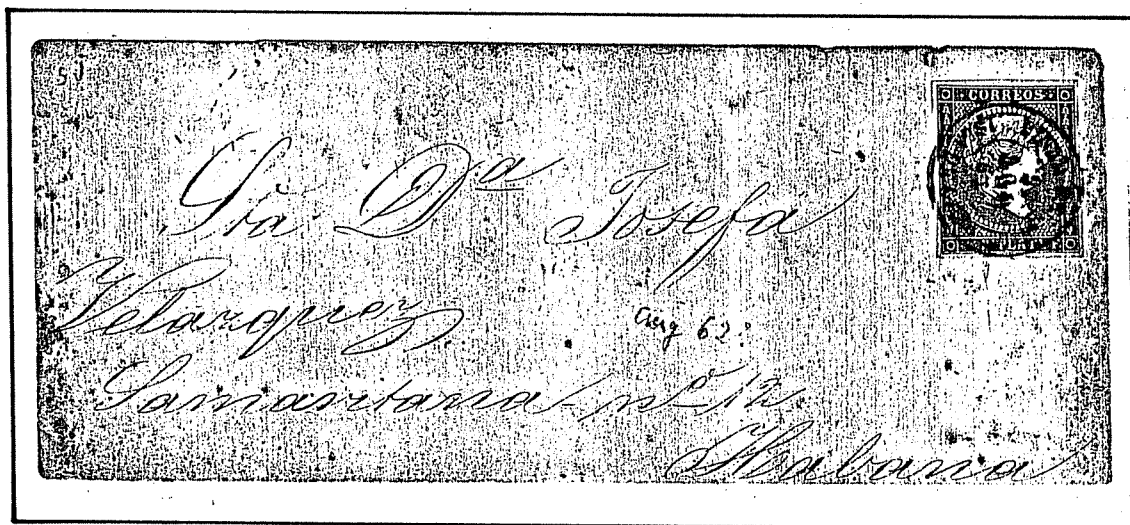 CORREOS
Sta Dª Josefa
Velazquez
Aug 62
Samaritana nº 12
Habana